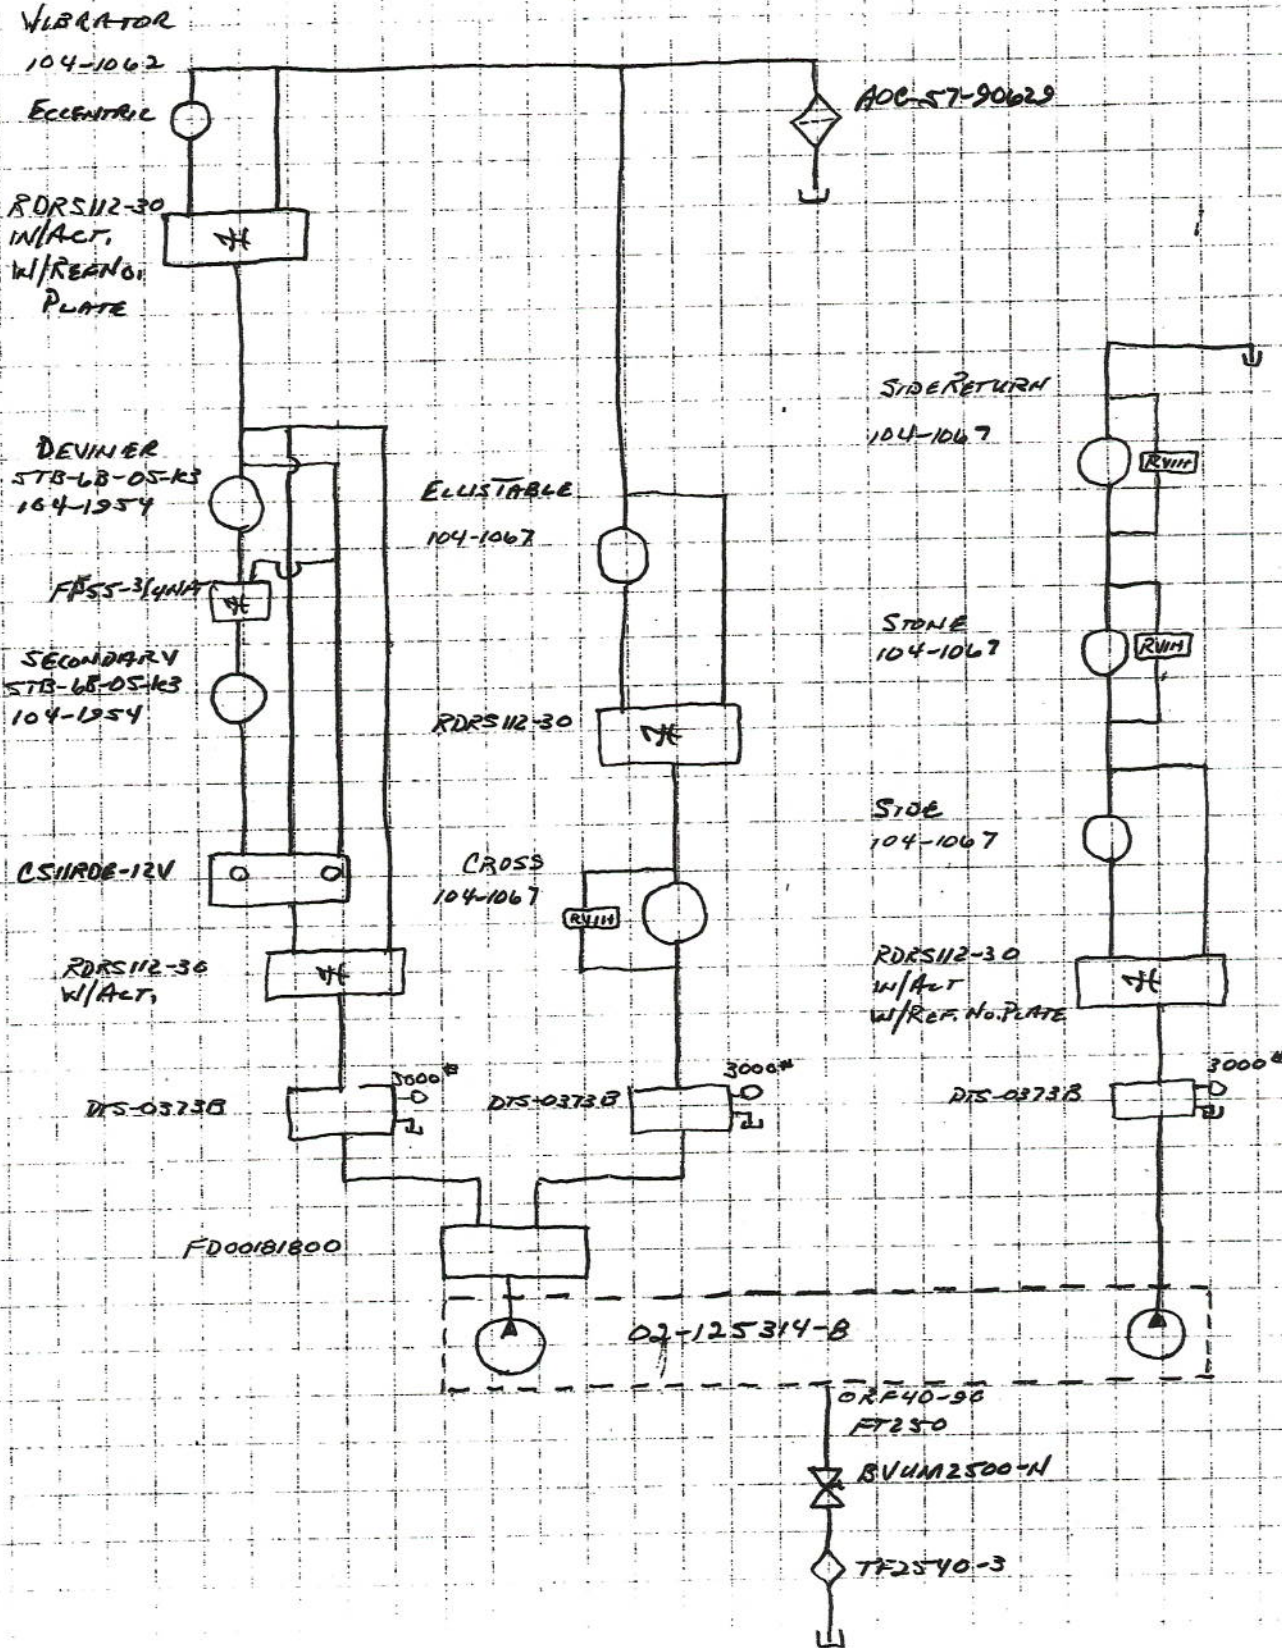 VIBRATOR
104-1062
ECCENTRIC
AOC-57-90629
RDRS112-30
W/ACT.
W/REF NO.
PLATE
SIDE RETURN
104-1067
RV1H
DEVINER
STB-6B-05-K3
104-1954
ELLIS TABLE
104-1067
FP55-3/4NA
STONE
104-1067
RV1H
SECONDARY
STB-6B-05-K3
104-1954
RDRS112-30
SIDE
104-1067
CS11RDE-12V
CROSS
104-1067
RV1H
RDRS112-30
W/ACT.
RDRS112-30
W/ACT
W/REF. NO. PLATE
3000#
3000#
3000#
DTS-0373B
DTS-0373B
DTS-0373B
FD00181800
02-125314-B
ORF40-90
FT250
BVUM2500-N
TF2540-3